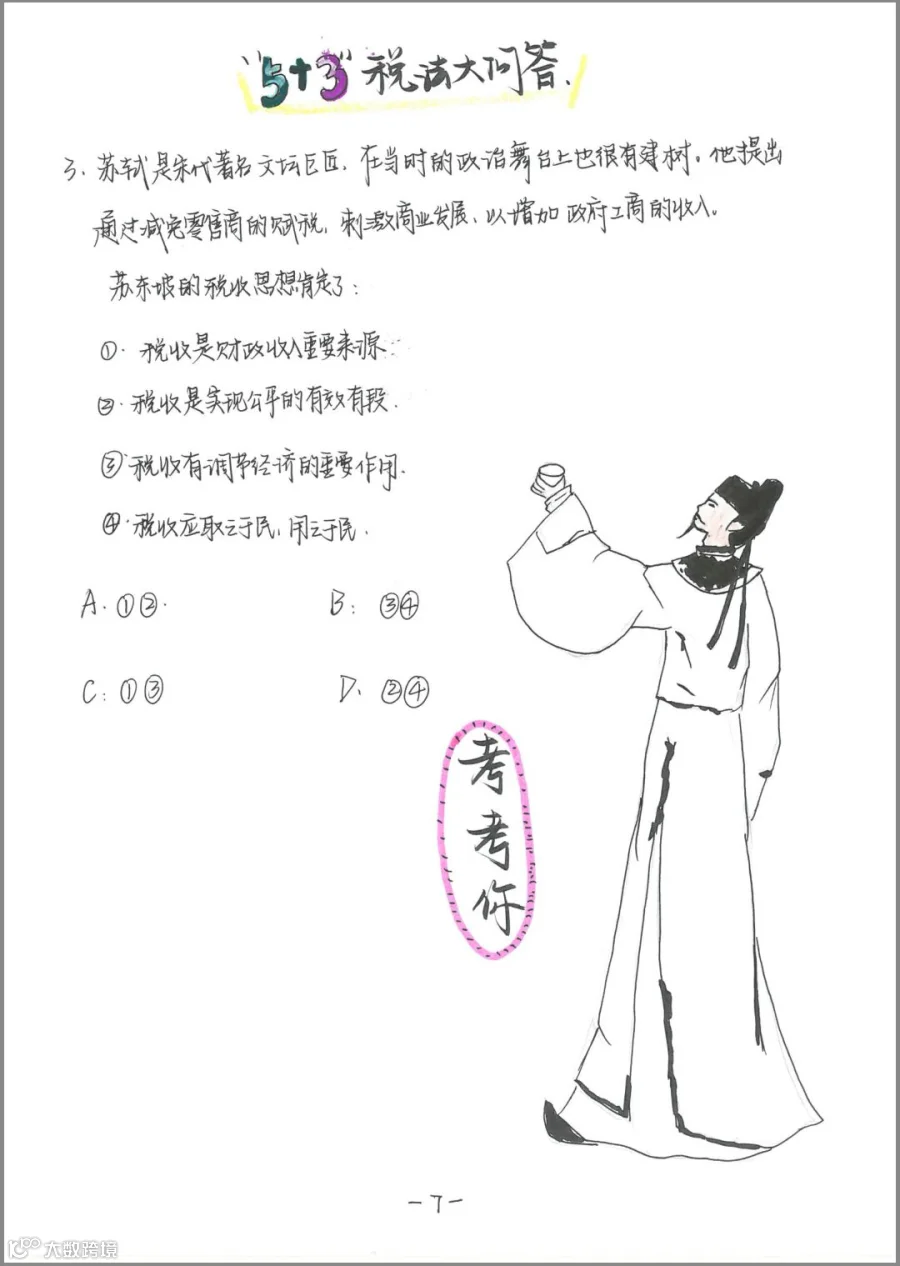 "5+3"税法大问答.
3. 苏轼是宋代著名文坛巨匠,在当时的政治舞台上也很有建树。他提出
通过减免零售商的赋税,刺激商业发展,以增加政府工商的收入。
苏东坡的税收思想肯定了:
①.税收是财政收入重要来源.
②.税收是实现公平的有效有段.
③税收有调节经济的重要作用.
④.税收应取之于民,用之于民.
A.①②. B:③④
C:①③ D、②④
考
考
你
-7-
大数跨境